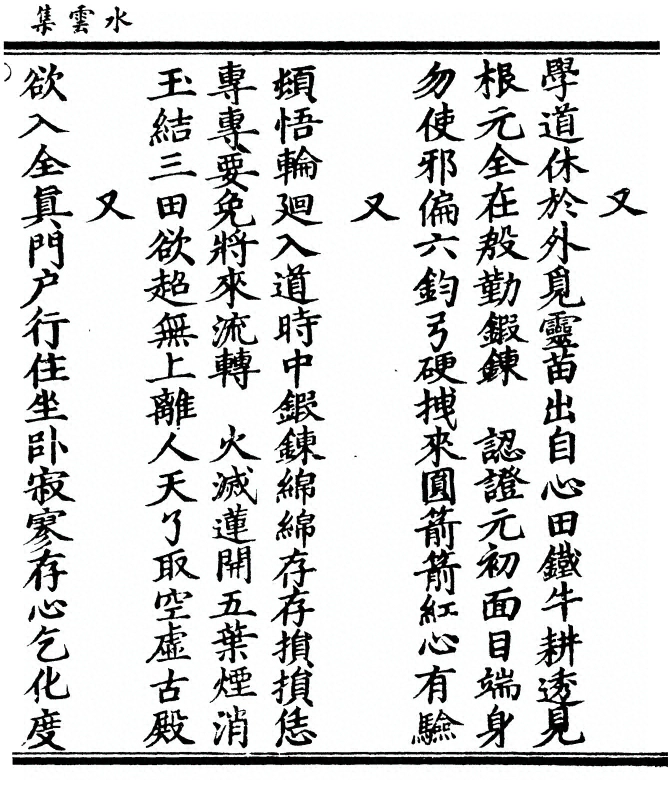 水雲集
又
學道休於外覓靈苗出自心田鐵牛耕透見
根元全在殷勤鍜鍊　認證元初面目端身
勿使邪偏六鈞弓硬拽來圓箭箭紅心有驗
又
頓悟輪廻入道時中鍜鍊綿綿存存損損恁
專專要免將來流轉　火滅蓮開五葉煙消
玉結三田欲超無上離人天了取空虛古殿
又
欲入全真門户行住坐卧寂寥存心乞化度